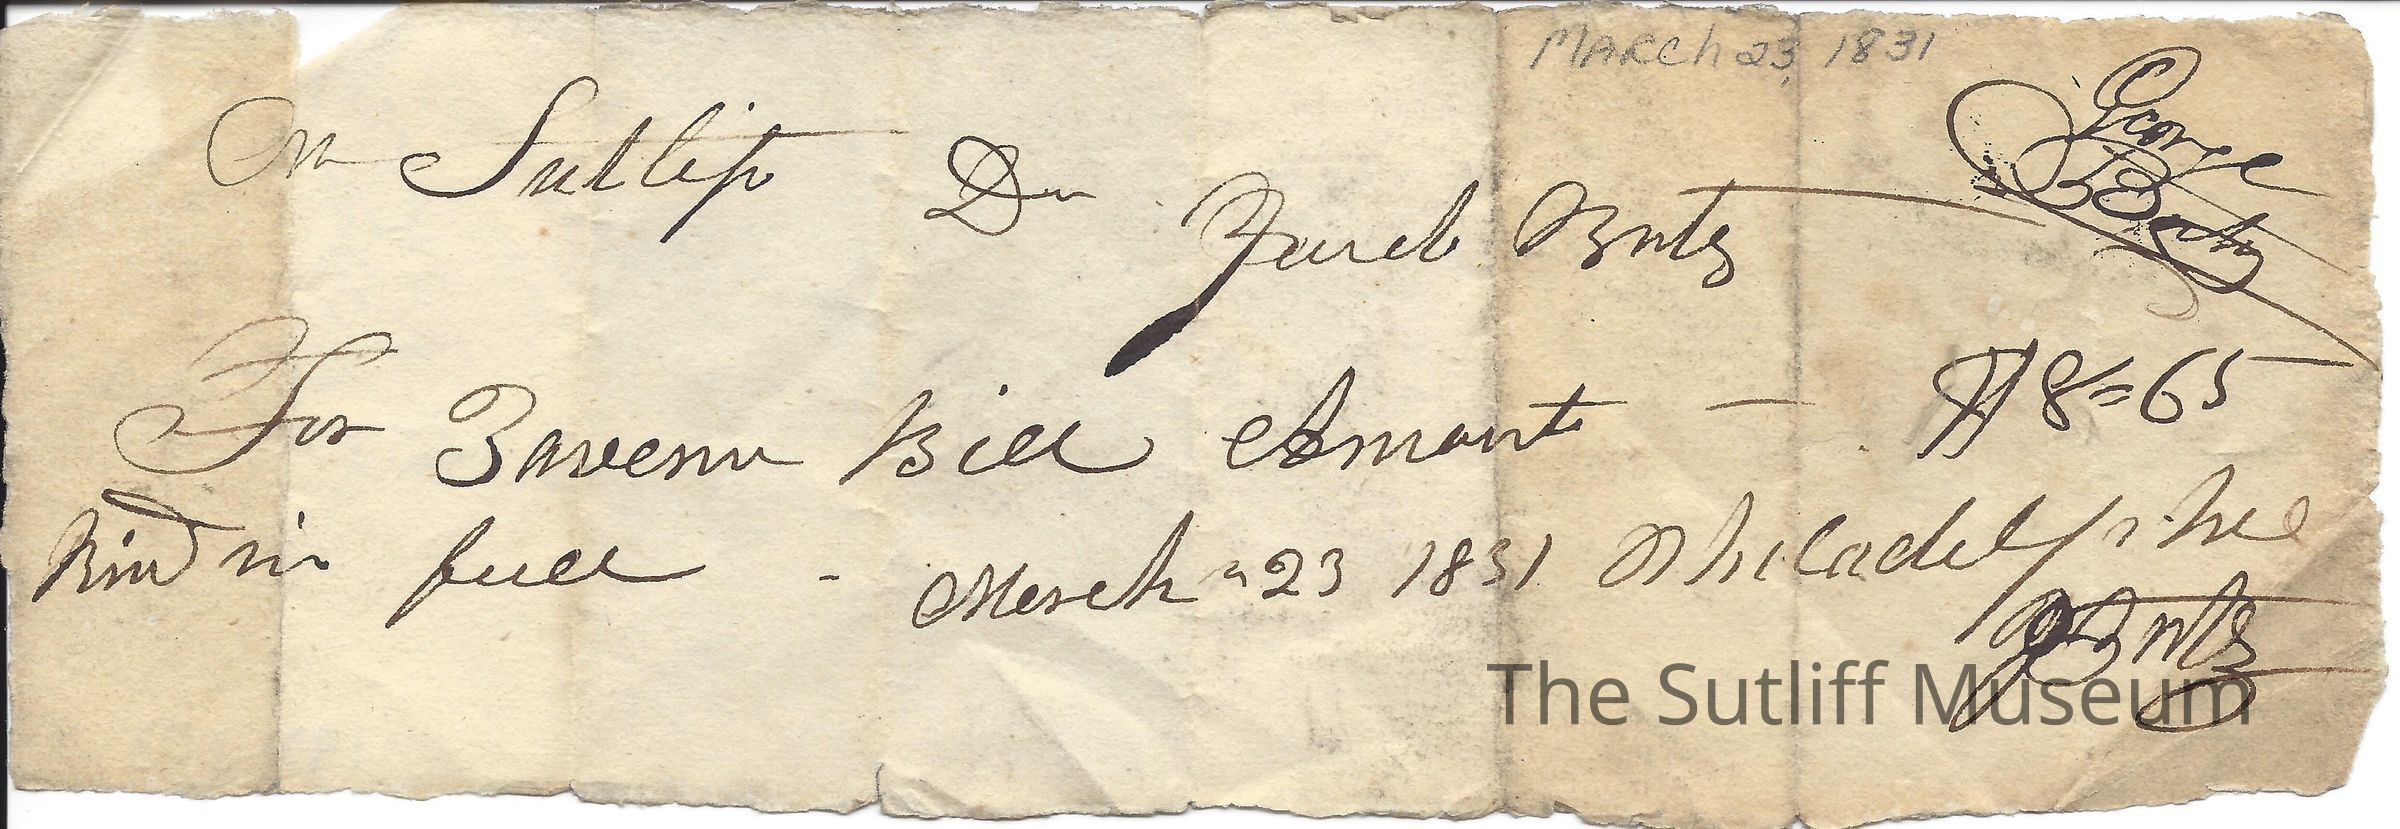 March 23, 1831
George
Mr Sutlip Dr
For Tavern Bill Amount — $8=65
in full - March 23 1831 Philadelphia
The Sutliff Museum